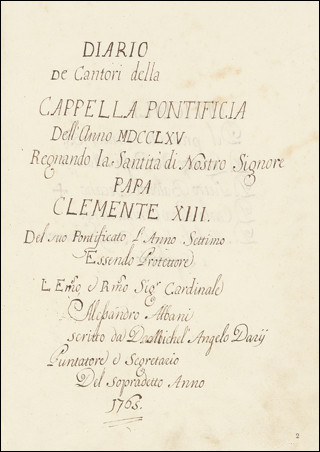 DIARIO
De Cantori della
CAPPELLA PONTIFICIA
Dell'Anno MDCCLXV.
Regnando la Santità di Nostro Signore
PAPA
CLEMENTE XIII.
Del suo Pontificato, l'Anno Settimo
Essendo Protettore
L'Emo, e Rmo Sigr Cardinale
Alessandro Albani
scritto da Michel'Angelo Darij
Puntatore e Segretario
Del sopradetto Anno
1765.
2